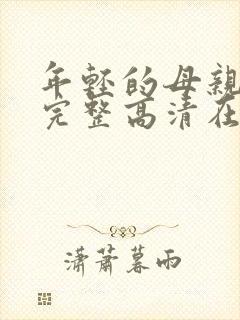 年轻的母亲
完整高清在
潇萧暮雨